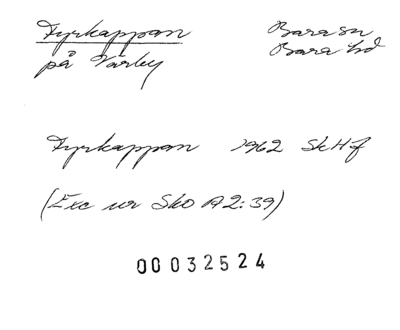 Fyrkappan Bara sn
på Värby Bara hd
Fyrkappan 1962 SkHf
(Exc ur SkO A2:39)
00032524